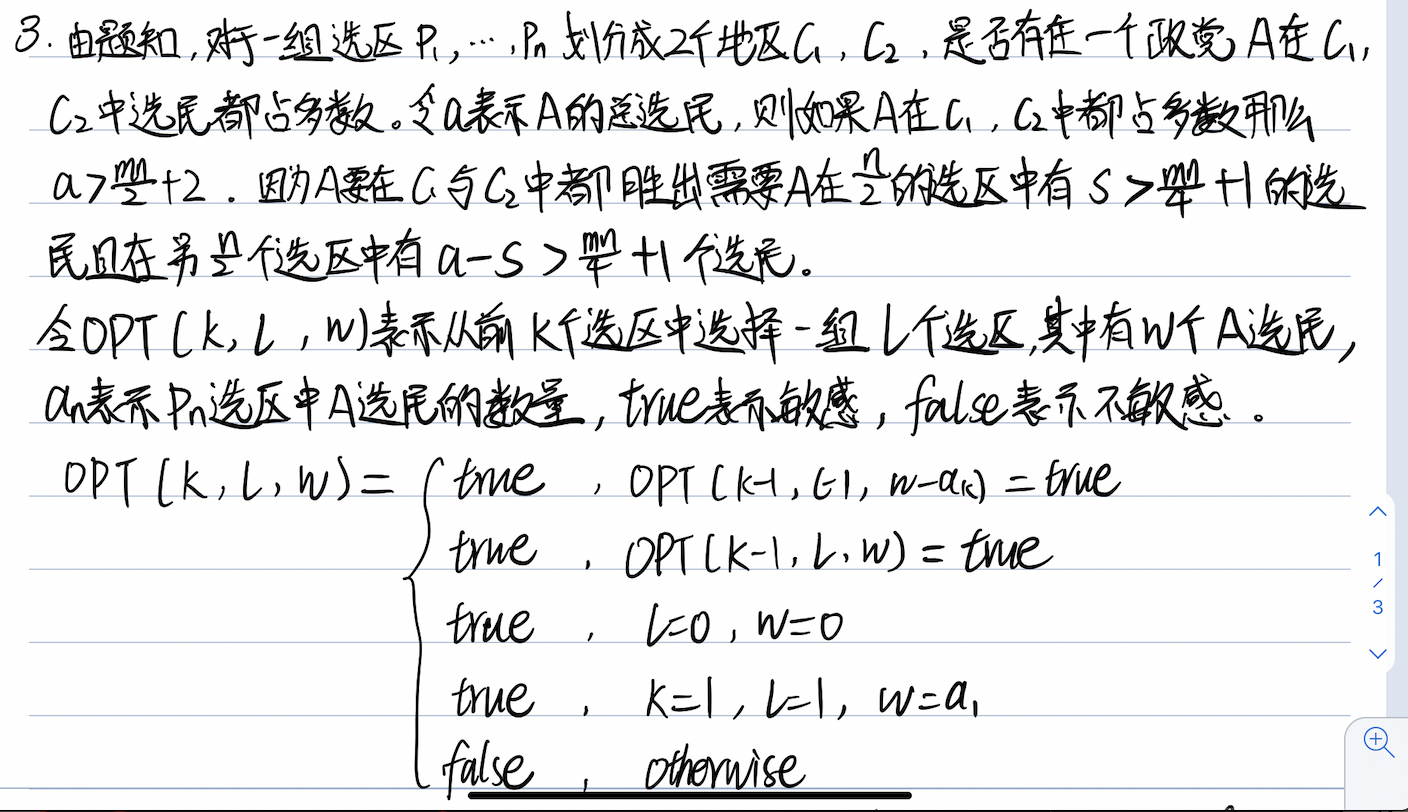 3. 由题知，对于一组选区 P₁, ⋯, Pn 划分成2个地区C₁, C₂，是否存在一个政党 A在C₁,
C₂中选民都占多数。令a表示A的总选民，则如果A在C₁, C₂中都占多数那么
a > mn/2 + 2 . 因为A要在C₁与C₂中都胜出需要A在 n/2 的选区中有 S > mn/4 + 1 的选
民且在另 n/2 个选区中有 a-S > mn/4 + 1 个选民。
令OPT(k, L, w)表示从前 k个选区中选择一组 L个选区,其中有w个A选民,
an表示Pn选区中A选民的数量, true表示敏感, false表示不敏感 .
OPT(k, L, w) = { true , OPT(k-1, L-1, w-ak) = true
true , OPT(k-1, L, w) = true
true , L=0, w=0
true , k=1, L=1, w=a₁
false , otherwise
1
/
3